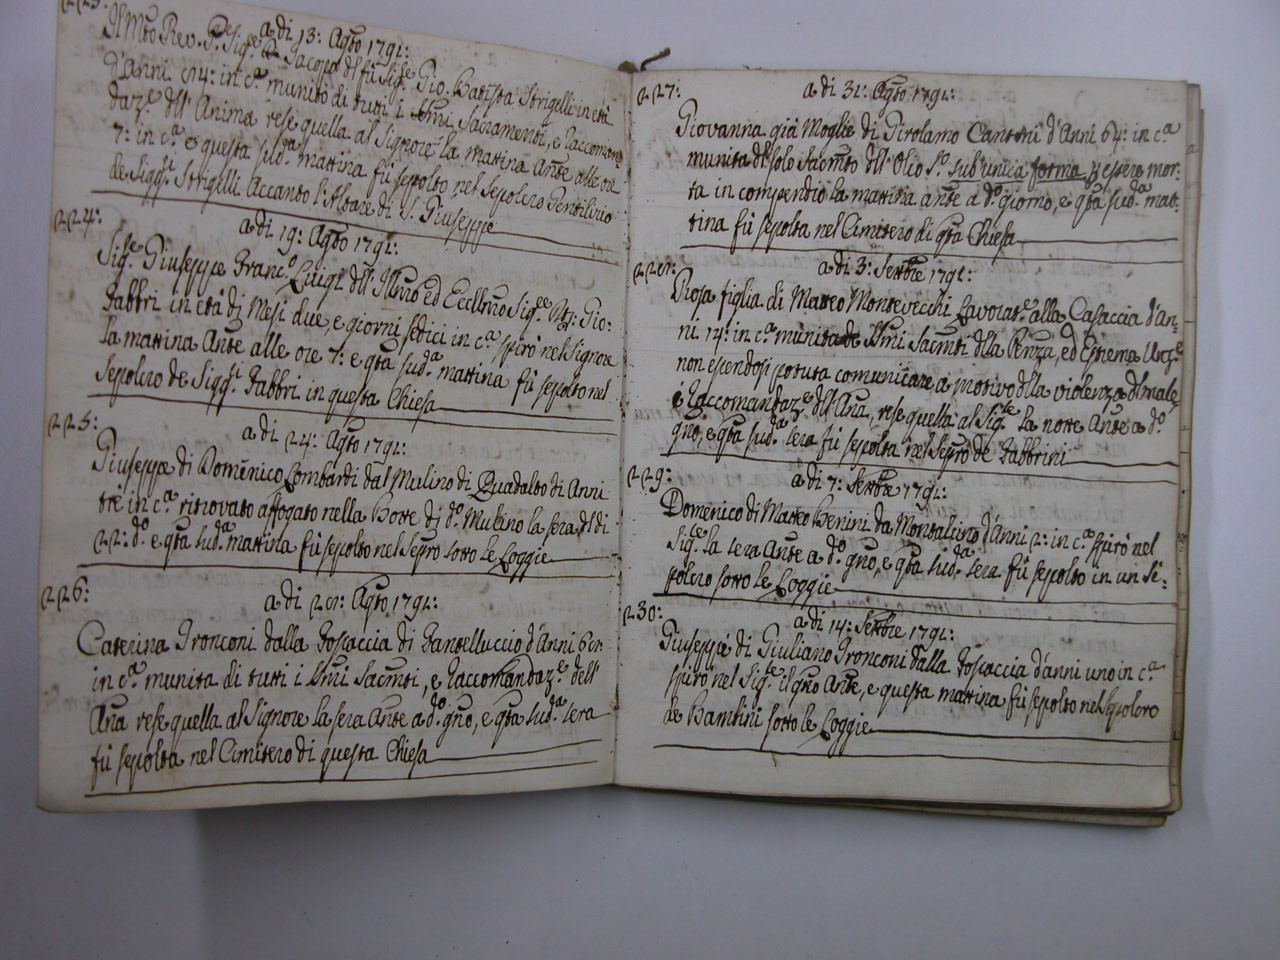 223:
a di 13: Agto 1791:
Il Mto Rev. Pe. Sige. Jacopo del fù Sige. Gio. Batista Strigelli in età
d'Anni 74: in ca. munito di tutti i SSmi Sacramenti, e Raccoman
daze. dll' Anima rese quella al Signore la mattina Ante alle ore
7: in ca. e questa suda. mattina fù sepolto nel Sepolcro Gentilizio
de Sigg:ri Strigelli Accanto l'Altare di S. Giuseppe
224:
a di 19: Agto 1791:
Sige. Giuseppe Franco. Luigi dll' Illmo ed Eccllmo Sige. Gio:
Fabbri in età di Mesi due, e giorni sedici in ca. spirò nel Signore
la mattina Ante alle ore 7: e qta suda. mattina fù sepolto nel
Sepolcro de Sigg:ri Fabbri in questa Chiesa
225:
a di 24: Agto 1791:
Giuseppe di Domenico Lombardi dal Mulino di Quadalto di Anni
trè in ca. ritrovato affogato nella Botte di do. Mulino la sera dl dì
22: do. e qta suda. mattina fù sepolto nel Sepro sotto le Loggie
226:
a di 28: Agto 1791:
Caterina Tronconi dalla Fossaccia di Fantelluccio d'Anni 68:
in ca. munita di tutti i SSmi Sacmti, e Raccomandaze. dell'
Ana rese quella al Signore la sera Ante a do. gno, e qta suda. sera
fù sepolta nel Cimitero di questa Chiesa
227:
a di 31: Agto 1791:
Giovanna già Moglie di Girolamo Cantoni d'Anni 64: in ca.
munita dl solo Sacmto dll' Olio So. sub unica forma p essere mor:
ta in compendio la mattina ante a do. giorno, e qta suda. mat:
tina fù sepolta nel Cimitero di qta Chiesa
228:
a di 3: Settbre 1791:
Rosa figlia di Matteo Montevecchi Lavorate. alla Casaccia d'An:
ni 14: in ca. munita de SSmi Sacmti dlla Penza, ed Estrema Unze.
non essendosi potuta comunicare a motivo dlla violenza dl male
e Raccomandaze. dll' Ana, rese quella al Sige. la notte Ante a do.
gno, e qta suda. sera fù sepolta nel Sepro de' Fabbrini
229:
a di 7: Settbre 1791:
Domenico di Matteo Benini da Montalcino d'Anni 2: in ca. spirò nel
Sige. la sera Ante a do. gno, e qta suda. sera fù sepolto in un Se:
polcro sotto le Loggie
230:
a di 14: Settbre 1791:
Giuseppe di Giuliano Tronconi dalla Fossaccia d'anni uno in ca.
spirò nel Sige. il gno Ante, e questa mattina fù sepolto nel Sepolcro
de Bambini sotto le Loggie